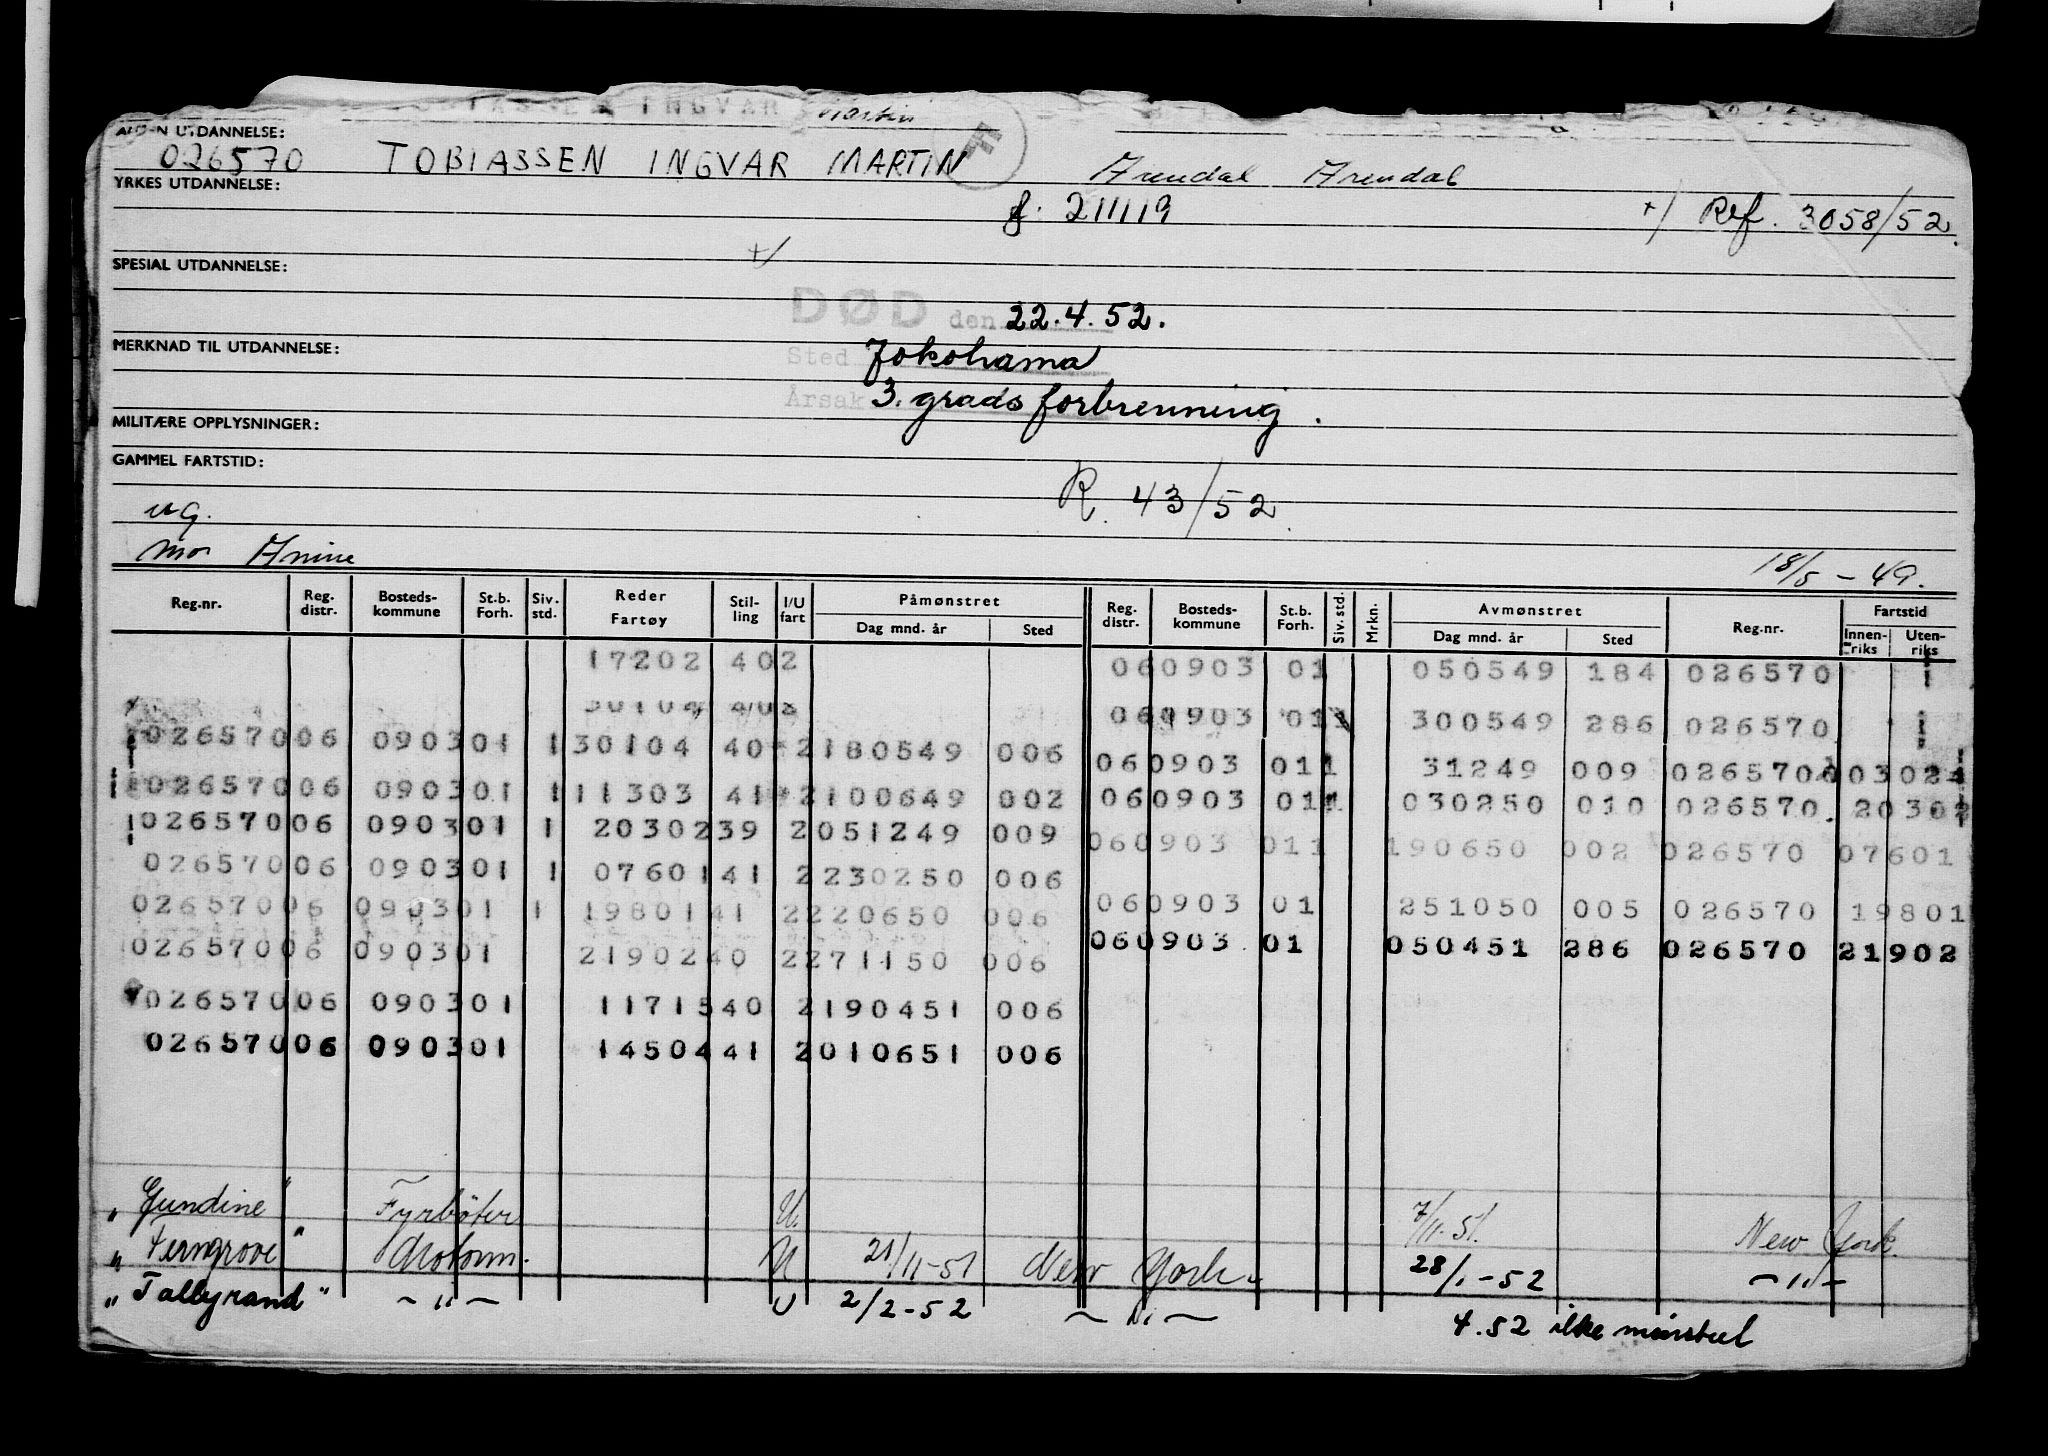 INGVAR Martin
ALM-N UTDANNELSE:
026570 TOBIASSEN INGVAR MARTIN Arendal Arendal
YRKES UTDANNELSE:
f. 211119 +/ Ref. 3058/52.
+/
SPESIAL UTDANNELSE:
DØD den 22.4.52.
MERKNAD TIL UTDANNELSE:
Sted Jokohama
Årsak 3. grads forbrenning.
MILITÆRE OPPLYSNINGER:
GAMMEL FARTSTID:
R. 43/52.
ug.
mor Anine 18/5 - 49.
Reg.nr. Reg. distr. Bosteds- kommune St.b. Forh. Siv. std. Reder Fartøy Stil- ling I/U fart Påmønstret Dag mnd. år Sted Reg. distr. Bosteds- kommune St.b. Forh. Siv. std. Mrkn. Avmønstret Dag mnd. år Sted Reg.nr. Fartstid Innen- riks Uten- riks
17202 402 060903 01 050549 184 026570
30104 402 060903 011 300549 286 026570
02657006 090301 1 30104 40 2180549 006 060903 011 31249 009 026570
02657006 090301 1 11303 41 2100649 002 060903 011 030250 010 026570. 20302
02657006 090301 1 2030239 2051249 009 060903 011 190650 002 026570 07601
02657006 090301 1 0760141 2230250 006
02657006 090301 1 1980141 2220650 006 060903 01 251050 005 026570 19801
02657006 090301 2190240 2271150 006 060903 01 050451 286 026570 21902
02657006 090301 1171540 2190451 006
02657006 090301 1450441 2010651 006
"Gundine" Fyrbøter U. 7/11.51. New York.
"Ferngrove" Motorm. U 21/11-51 New York. 28/1-52 - " -
"Tallyrand" - " - U 2/2-52 - " - 4.52 ikke mønstret